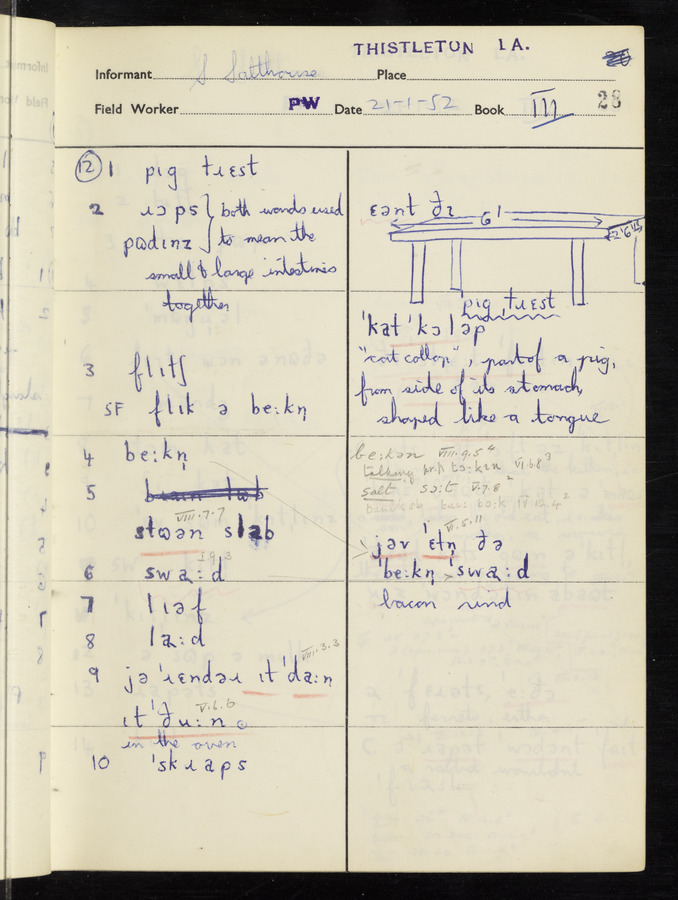 THISTLETON 1A.
Informant S Salthouse Place
Field Worker PW Date 21-1-52 Book III 28
12 1 pɪg tɹɛst
2 ɹɔps } both words used
pɒdɪnz } to mean the
small & large intestines
together
3 flɪtʃ
SF flɪk ə be:kn̩
4 be:kn̩
5
VIII.7.7
stɒən slab
I 9.3
6 swa:d
7 lɪəf
8 la:d
VIII.3.3
9 jə 'ɹɛndəɹ ɪt 'da:n
V.6.6
ɪt 'ðu:n
in the oven
10 'skɹaps
ɛənt ðɪ
6'
2'6"
pɪg tɹɛst
'kat 'kɔləp
"cat collop", part of a pig,
from side of its stomach,
shaped like a tongue
be:kən VIII.9.5
talking to:kɪn VI.6.8 3
salt sɔ:t V.7.8 2
V.5.11
jəv 'ɛtn̩ ðə
'be:kn̩ 'swa:d
bacon rind